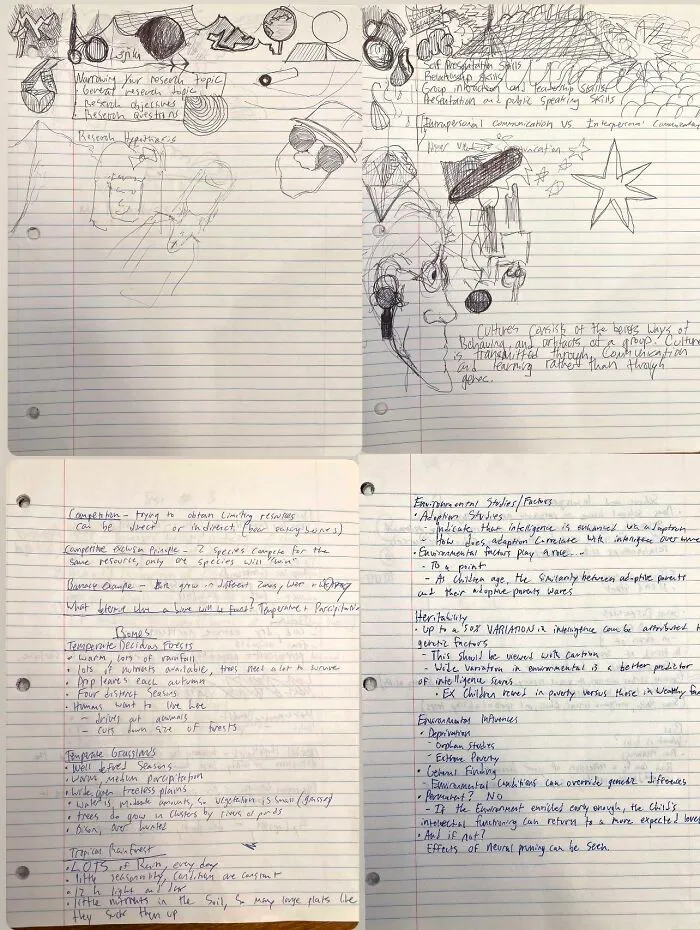 Narrowing Your research topic
· General research topic
· Research objectives
· Research questions
Research Hypothesis
Self Presentation Skills
Relationship Skills
Group interaction and leadership skills
Presentation and public speaking skills
Intrapersonal communication VS. Interpersonal
Cultures consists of the beliefs ways of
Behaving and artifacts of a group. Culture
is transmitted through Communication
and learning rather than through
genec.
Competition - trying to obtain Limiting resources
can be direct or indirect (bear eating berries)
Competitive Exclusion Principle - 2 Species Compete for the
same resource, only one species will "win"
Example - grow in different Zones,
What determine where a biome will be found? Temperature +
Biomes
Temperate Deciduous Forests
· Warm, lots of rainfall
· lots of nutrients available, trees need a lot to survive
· Drop leaves each autumn
· Four distinct Seasons
· Humans want to live here
- drives out animals
- cuts down size of forests
Temperate Grasslands
· Well defined Seasons
· Warm, medium parcipitation
· Wide open treeless plains
· water is moderate amounts, so vegetation is small (grasses)
· trees do grow in clusters by rivers or ponds
· Bison, over hunted
Tropical Rainforest
· LOTS of Rain, every day
· little seasonality, conditions are constant
· 12 h light and dar
· little nutrients in the Soil, So many large plats like
they suck them up
Environmental Studies/Factors
· Adoption Studies
- Indicate that intelligence is enhanced via adoption
- How does adoption Correlate with intelligence over
· Environmental factors play a role...
- To a point
- As Children age, the similarity between adoptive parents
and their adoptive parents wares
Heritability
· UP to a 50% VARIATION in intelligence can be attributed
genetic factors
- This should be viewed with caution
- Wide variation in environmental is a better predictor
of intelligence scores
· EX Children raised in poverty versus those in wealthy
Environmental Influences
· Deprivation
- Orphan studies
- Extreme Poverty
· General Finding
- Environmental Conditions can override genetic differences
· Permanent? NO
- If the Environment enriched early enough, the Child's
intellectual functioning can return to a more expected
· And if not?
Effects of neural pruning can be seen.